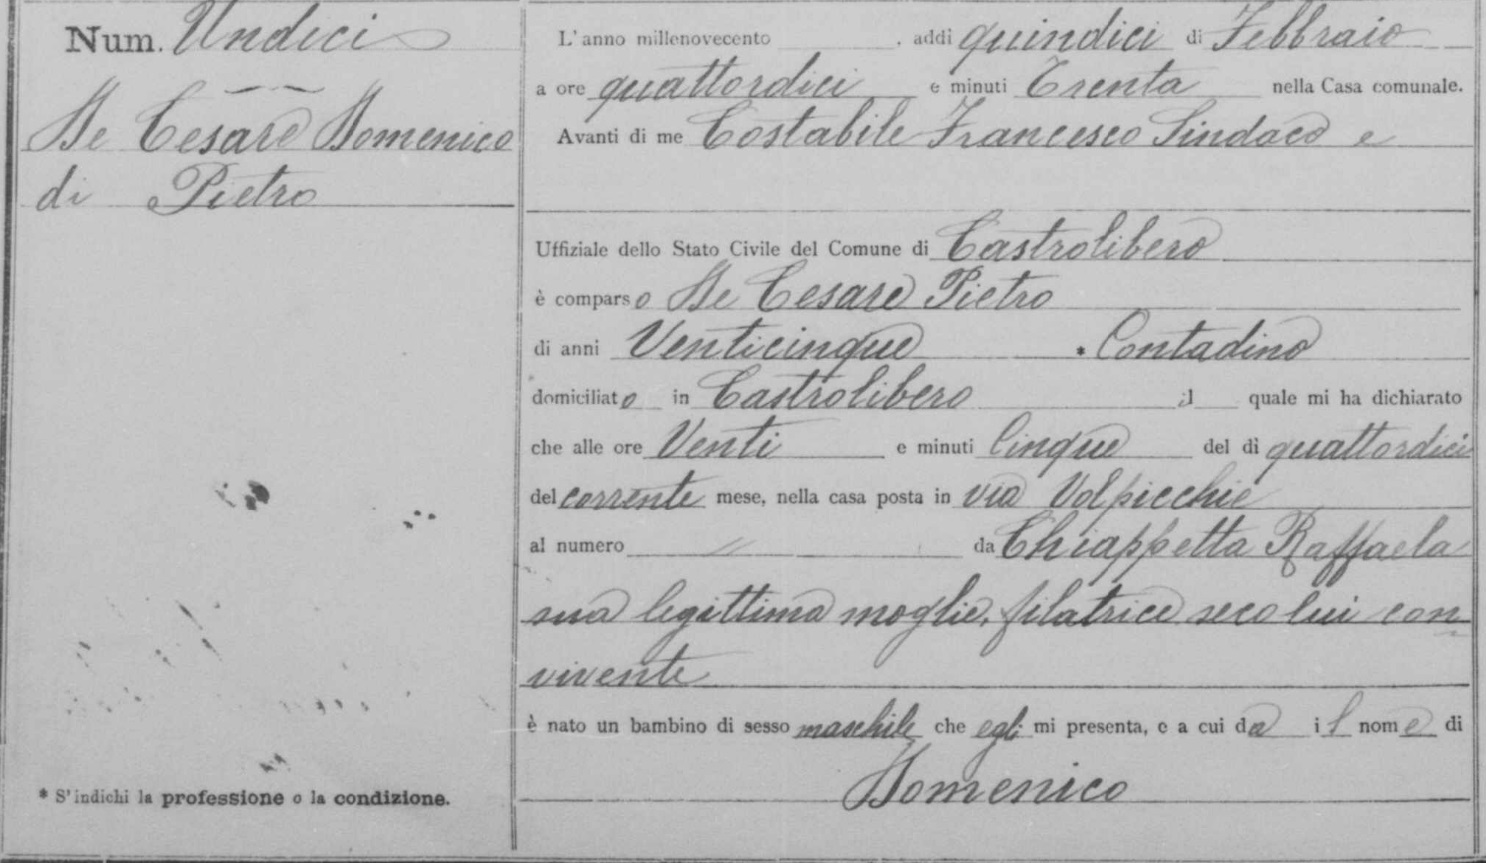 Num. Undici
De Cesare Domenico
di Pietro
* S'indichi la professione o la condizione.
L'anno millenovecento , addì quindici di Febbraio
a ore quattordici e minuti Trenta nella Casa comunale.
Avanti di me Costabile Francesco Sindaco e
Uffiziale dello Stato Civile del Comune di Castrolibero
è comparso De Cesare Pietro
di anni Venticinque * Contadino
domiciliato in Castrolibero il quale mi ha dichiarato
che alle ore Venti e minuti Cinque del dì quattordici
del corrente mese, nella casa posta in via Volpicchie
al numero // da Chiappetta Raffaela
sua legittima moglie, filatrice seco lui con
vivente
è nato un bambino di sesso maschile che egli mi presenta, e a cui da il nome di
Domenico